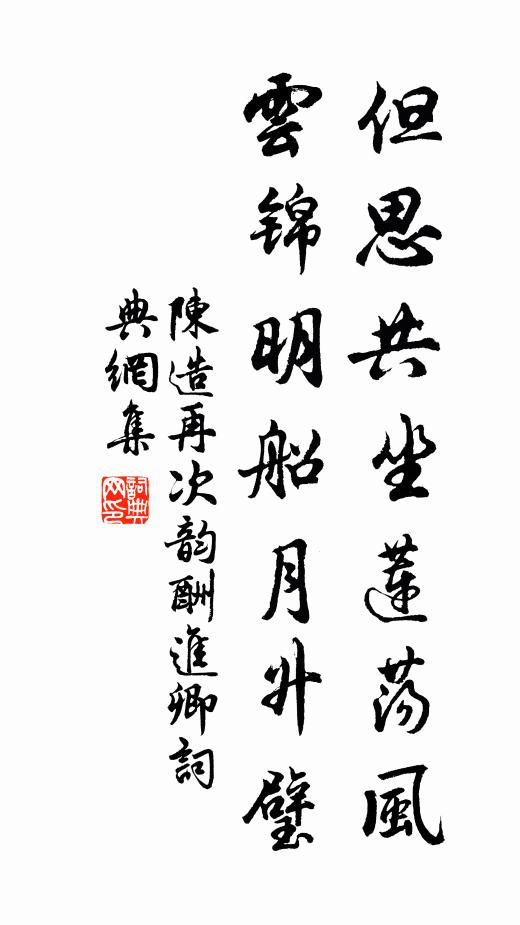 但思共坐蓮蕩風
雲錦明船月升璧
陳造再次韵酬進卿詞
典網集
詞典网印